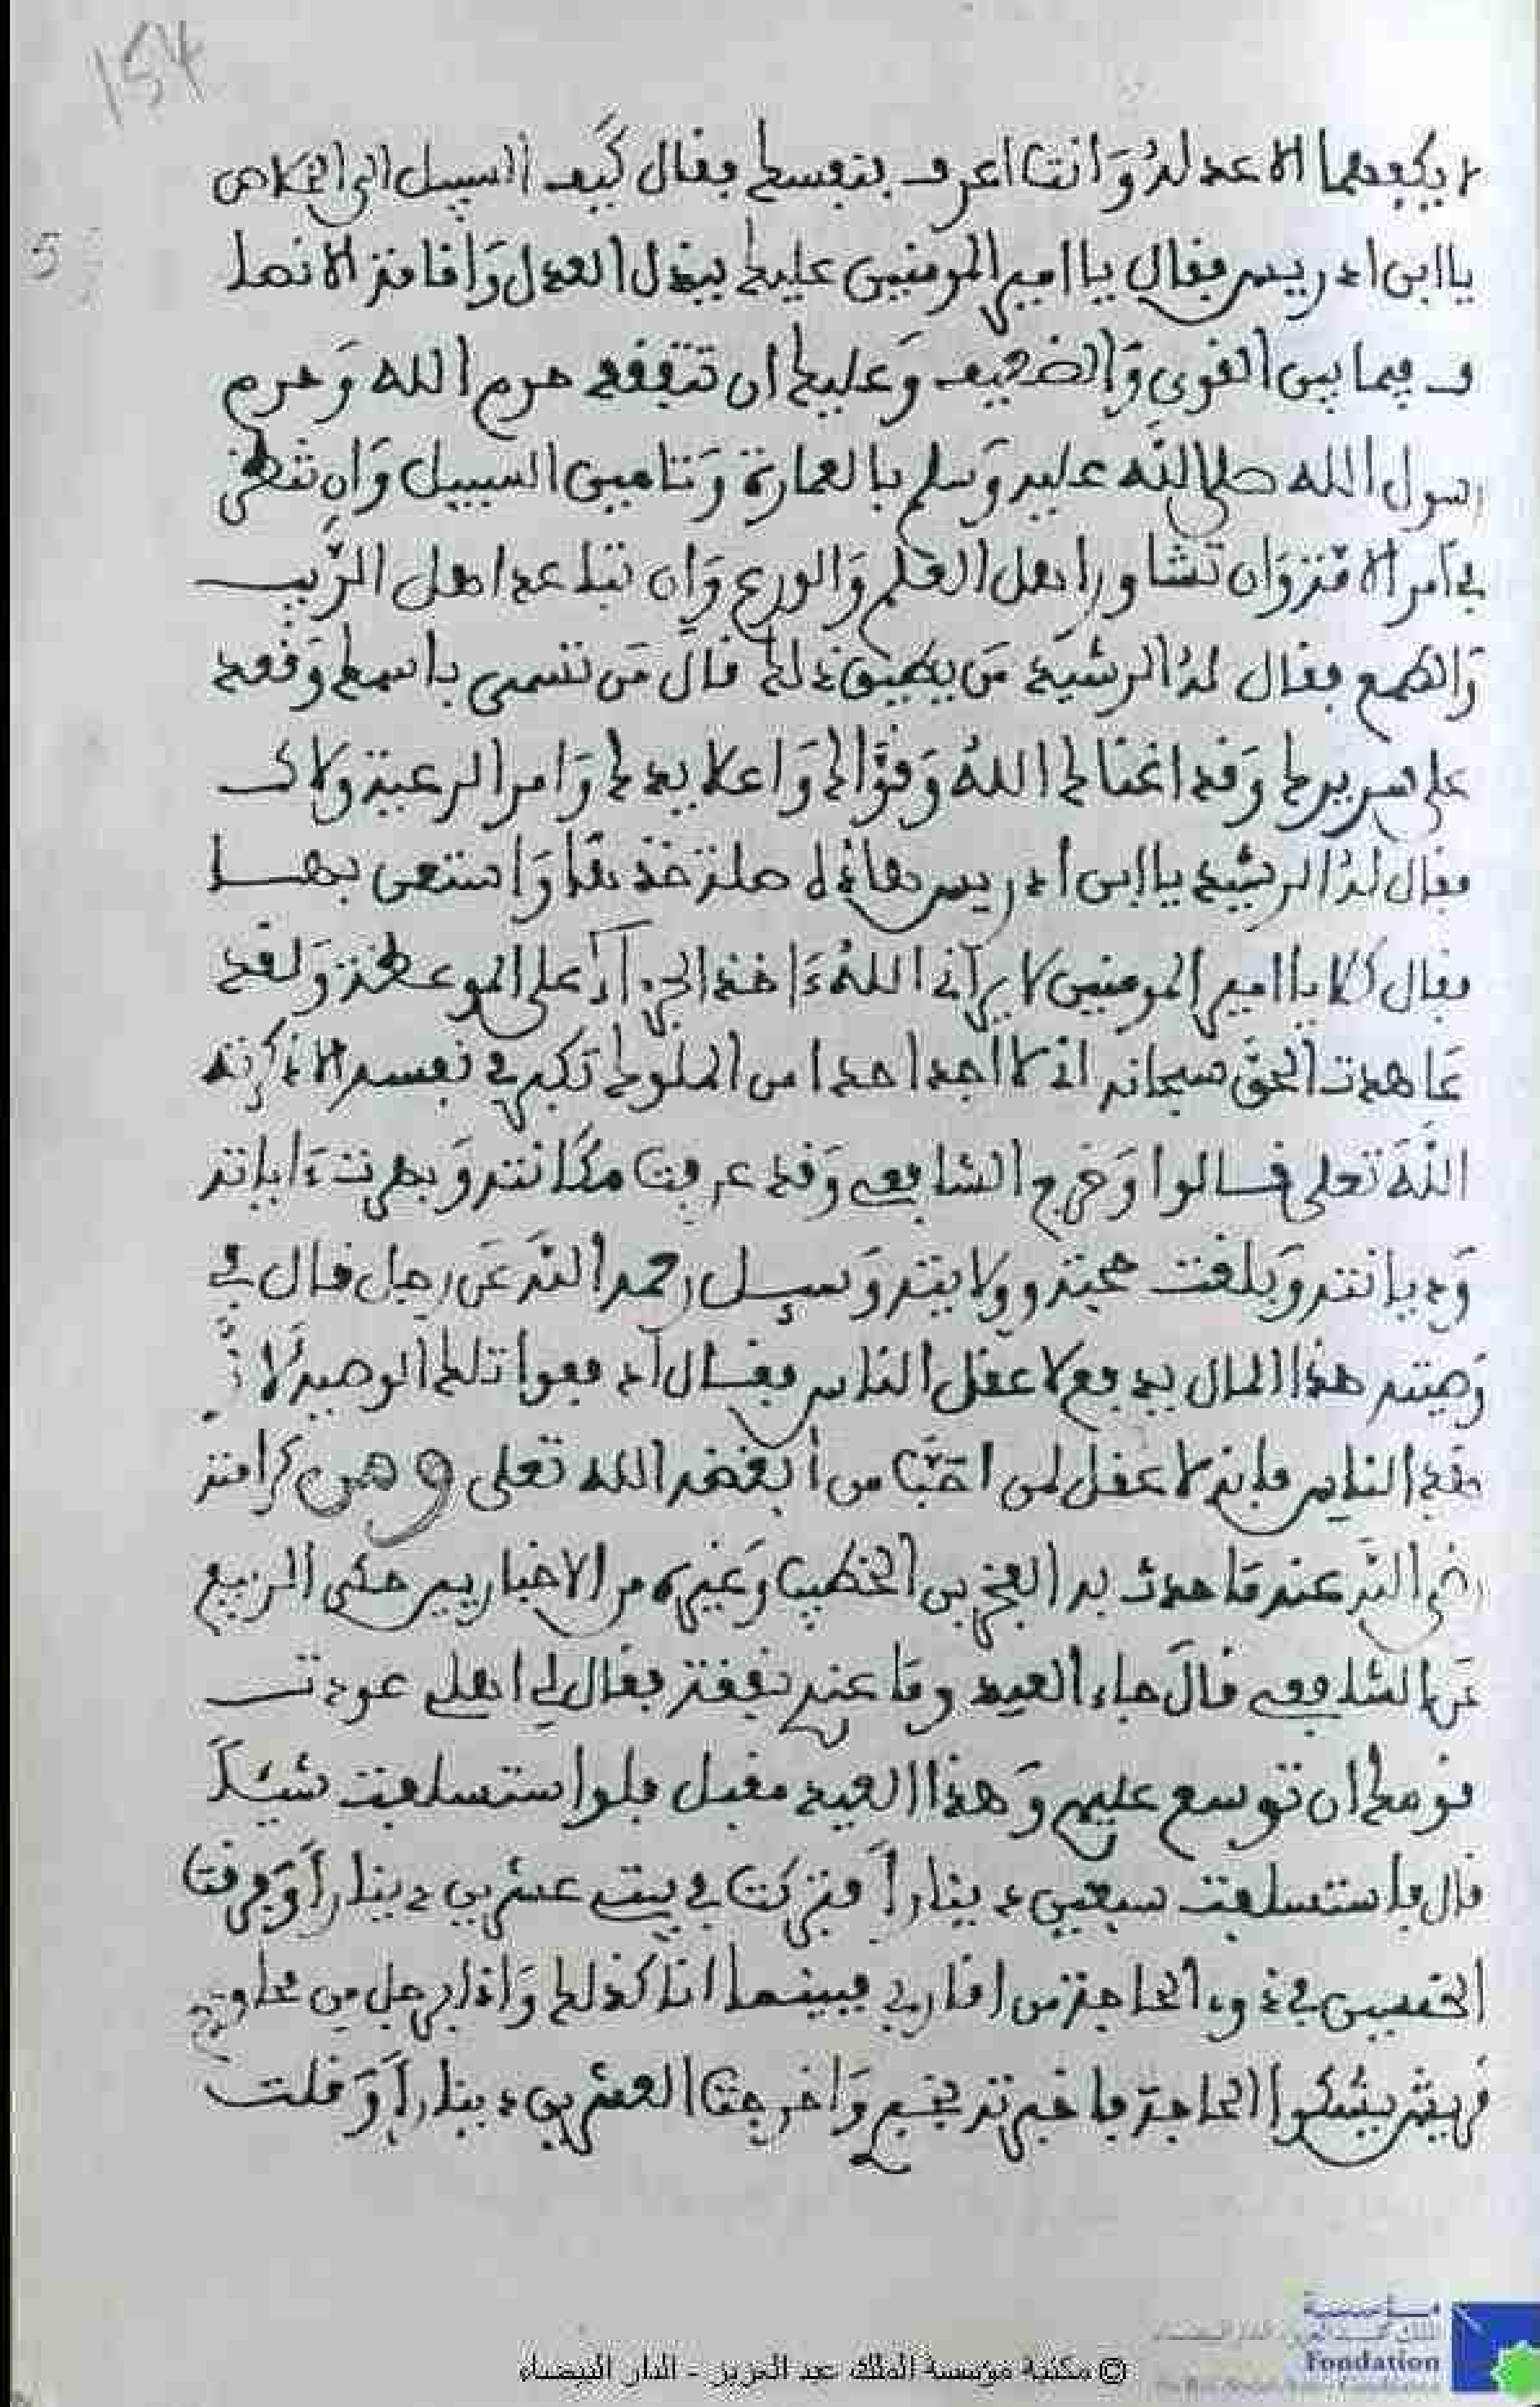 154
لا يكفيهما الا عدله وَانت اعرف بنفسك فقال كَيف السبيل الى الخلاص
5
يا ابن ادريس فقال يا امير المومنين عليك ببذل العدل وَاقامة الانصا
ف فيما بين القوي وَالضعيف وَعليك ان تتفقد حرم الله وَحرم
رسول الله صلى الله عليه وَسلم بالعمارة وَتامين السبيل وَان تنظر
في امر الامة وَان تشاور اهل العلم وَالورع وَان تباعد اهل الرَّيب
وَالطمع فقال له الرشيد مَن يطيق ذلك قال مَن تسمى باسمك وَقعد
على سريرك وَقد اغناك اللهُ وَقوَّاك وَاعلا يدك وَامر الرعية ولاك
فقال له الرشيد يا ابن ادريس هاذه صلة خذها وَاستعن بهـا
فقال كلا يا امير المومنين لا يرآني اللهُ ءَاخذ الجزآء على الموعظة وَلقد
عَاهدت الحق سبحانه اني لا اجد احدا من الملوك تكبر في نفسه الا ذكرته
اللهَ تعلى قـالوا وَخرج الشافعي وَقد عرفت مكانته وَبهرت ءاياته
وَديانته وَبلغت محبته وولايته وَسيـل رحمه الله عَن رجل قال في
وَصيته هذا المال يدفع لاعقل الناس فقـال آدفعوا تلك الوصية لاز
هد الناس فانه لا عقل لمن احَبَّ من أبغضه الله تعلى ومن كرامته
رضي الله عنه مَا حدث به الفخر بن الخطيب وَغيره من الاخباريين حكى الربيع
عَن الشافعي قالَ جاء العيد ومَا عندي نفقة فقال لي اهلي عودت
قومك ان توسع عليهم وَهذا العيد مقبل فلو استسلفت شيئاً
قال فاستسلفت سبعين دينارا فتركت في بيتي عشرين دينارا وَفرقت
الخمسين في ذوي الحاجة من اقاربي فبينما انا كذلك وَاذا برجل من
قريش يشكوا الحاجة فاخبرته بخبري وَاخرجت العشرين دينارا وَقلت
© مكتبة مؤسسة الملك عبد العزيز - الدار البيضاء
مؤسسة
Fondation